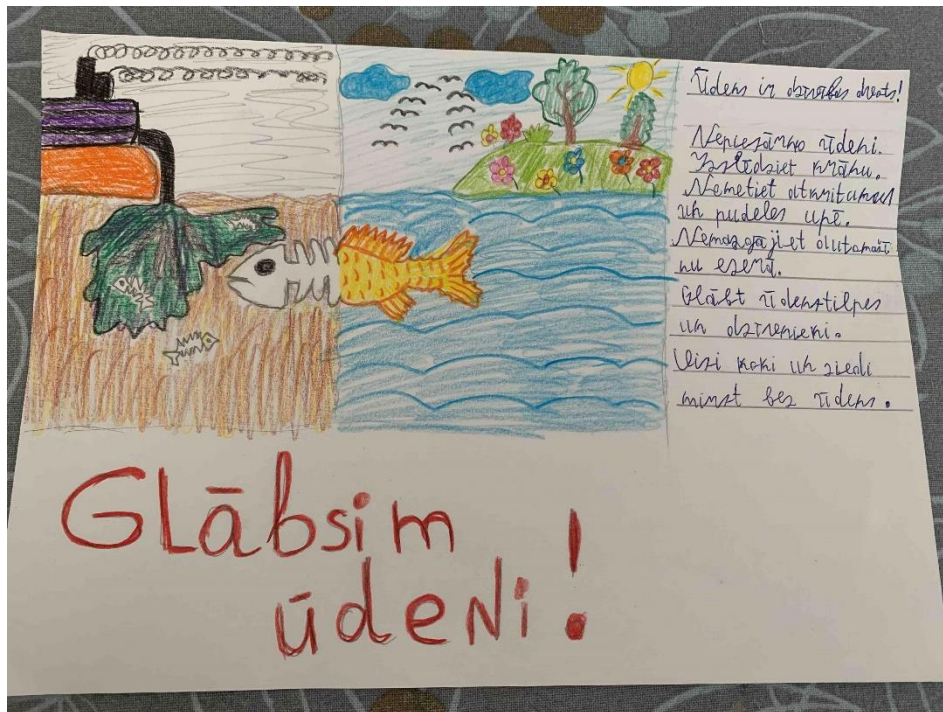 Ūdens ir dzīvības avots!
Nepiesārņo ūdeni.
Izslēdziet krānu.
Nemetiet atkritumus
un pudeles upē.
Nemazgājiet automašī
nu ezerā.
Glābt ūdenstilpes
un dzīvnieki.
Visi koki un ziedi
mirst bez ūdens.
Glābsim
ūdeni!